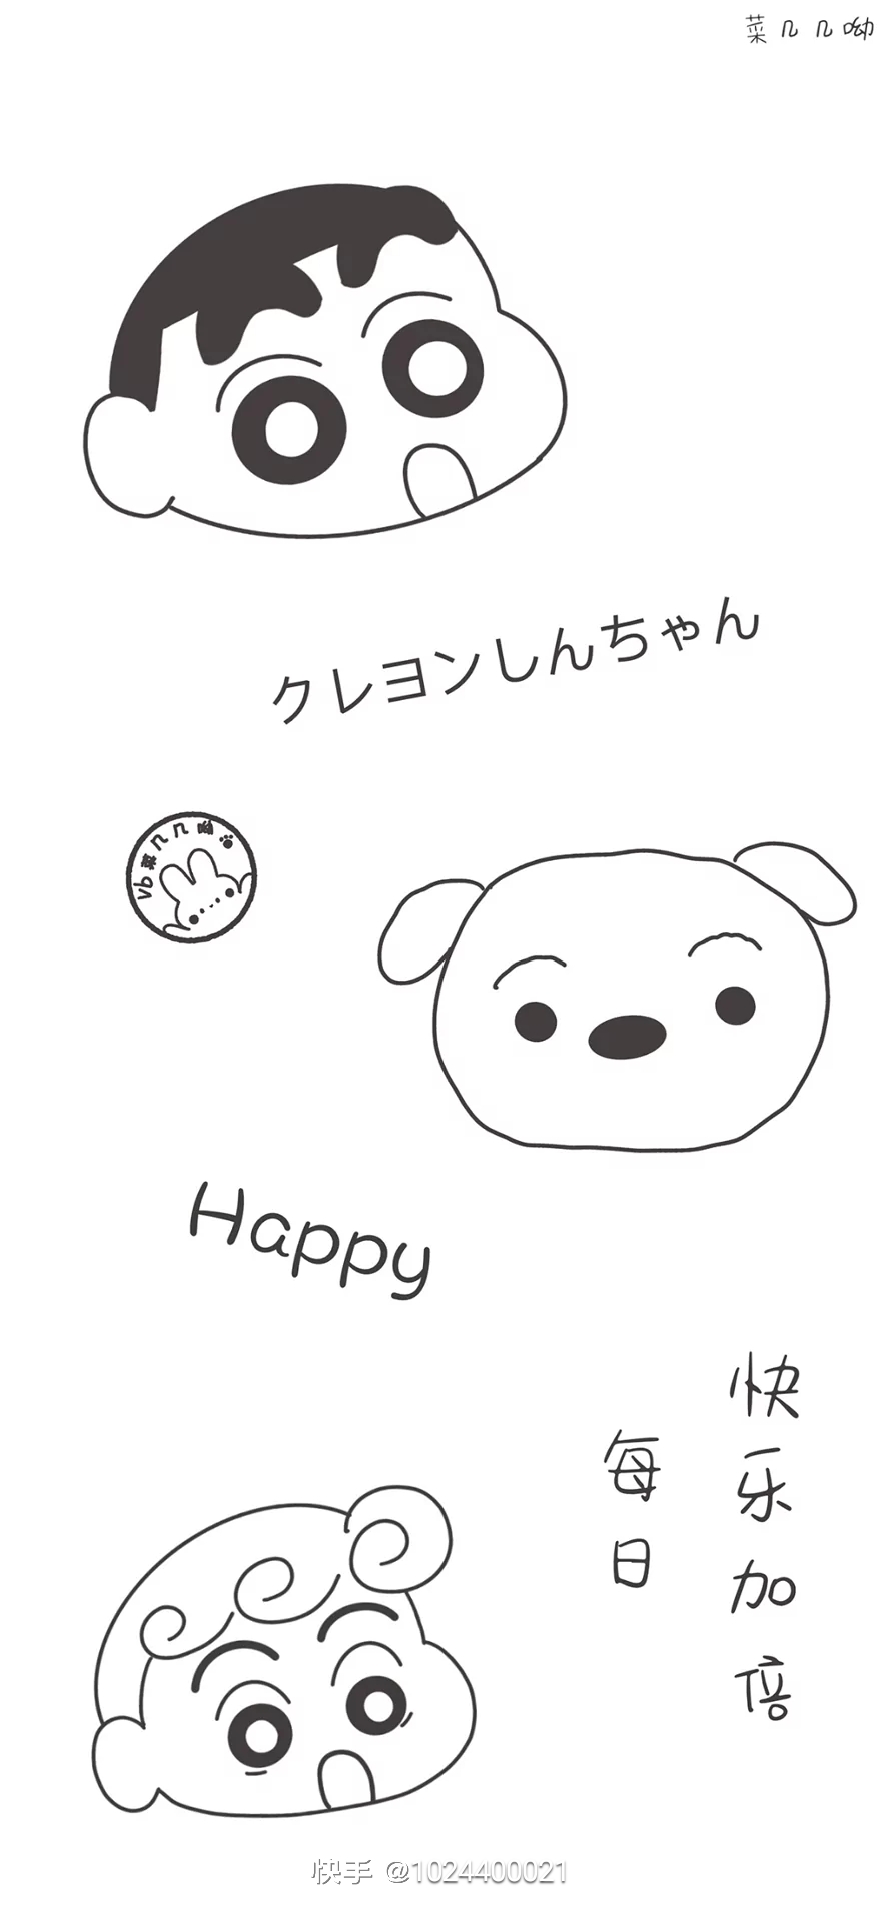 菜几几呦
クレヨンしんちゃん
vb菜几几呦
Happy
快乐加倍
每日
快手 @1024400021